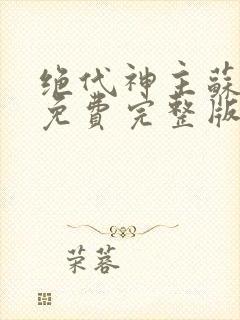 绝代神主蘇
免費完整版
荣蓉